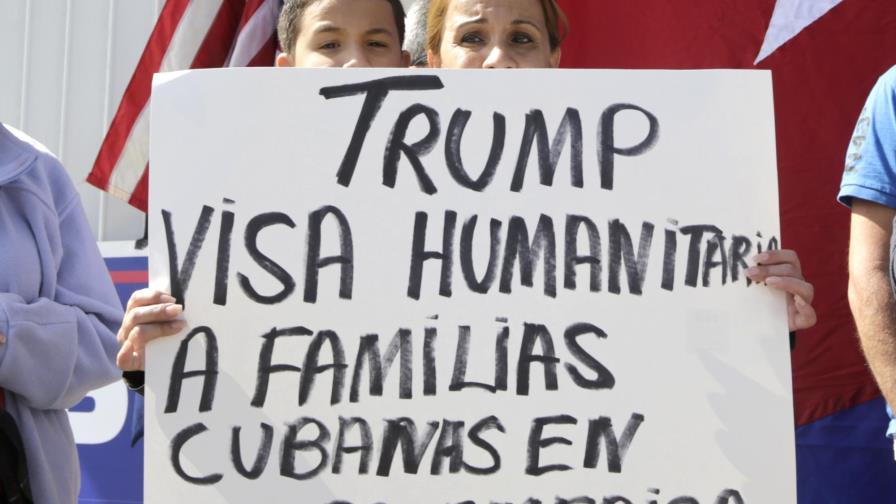 TRUMP
VISA HUMANITARIA
A FAMÍLIAS
CUBANAS EN